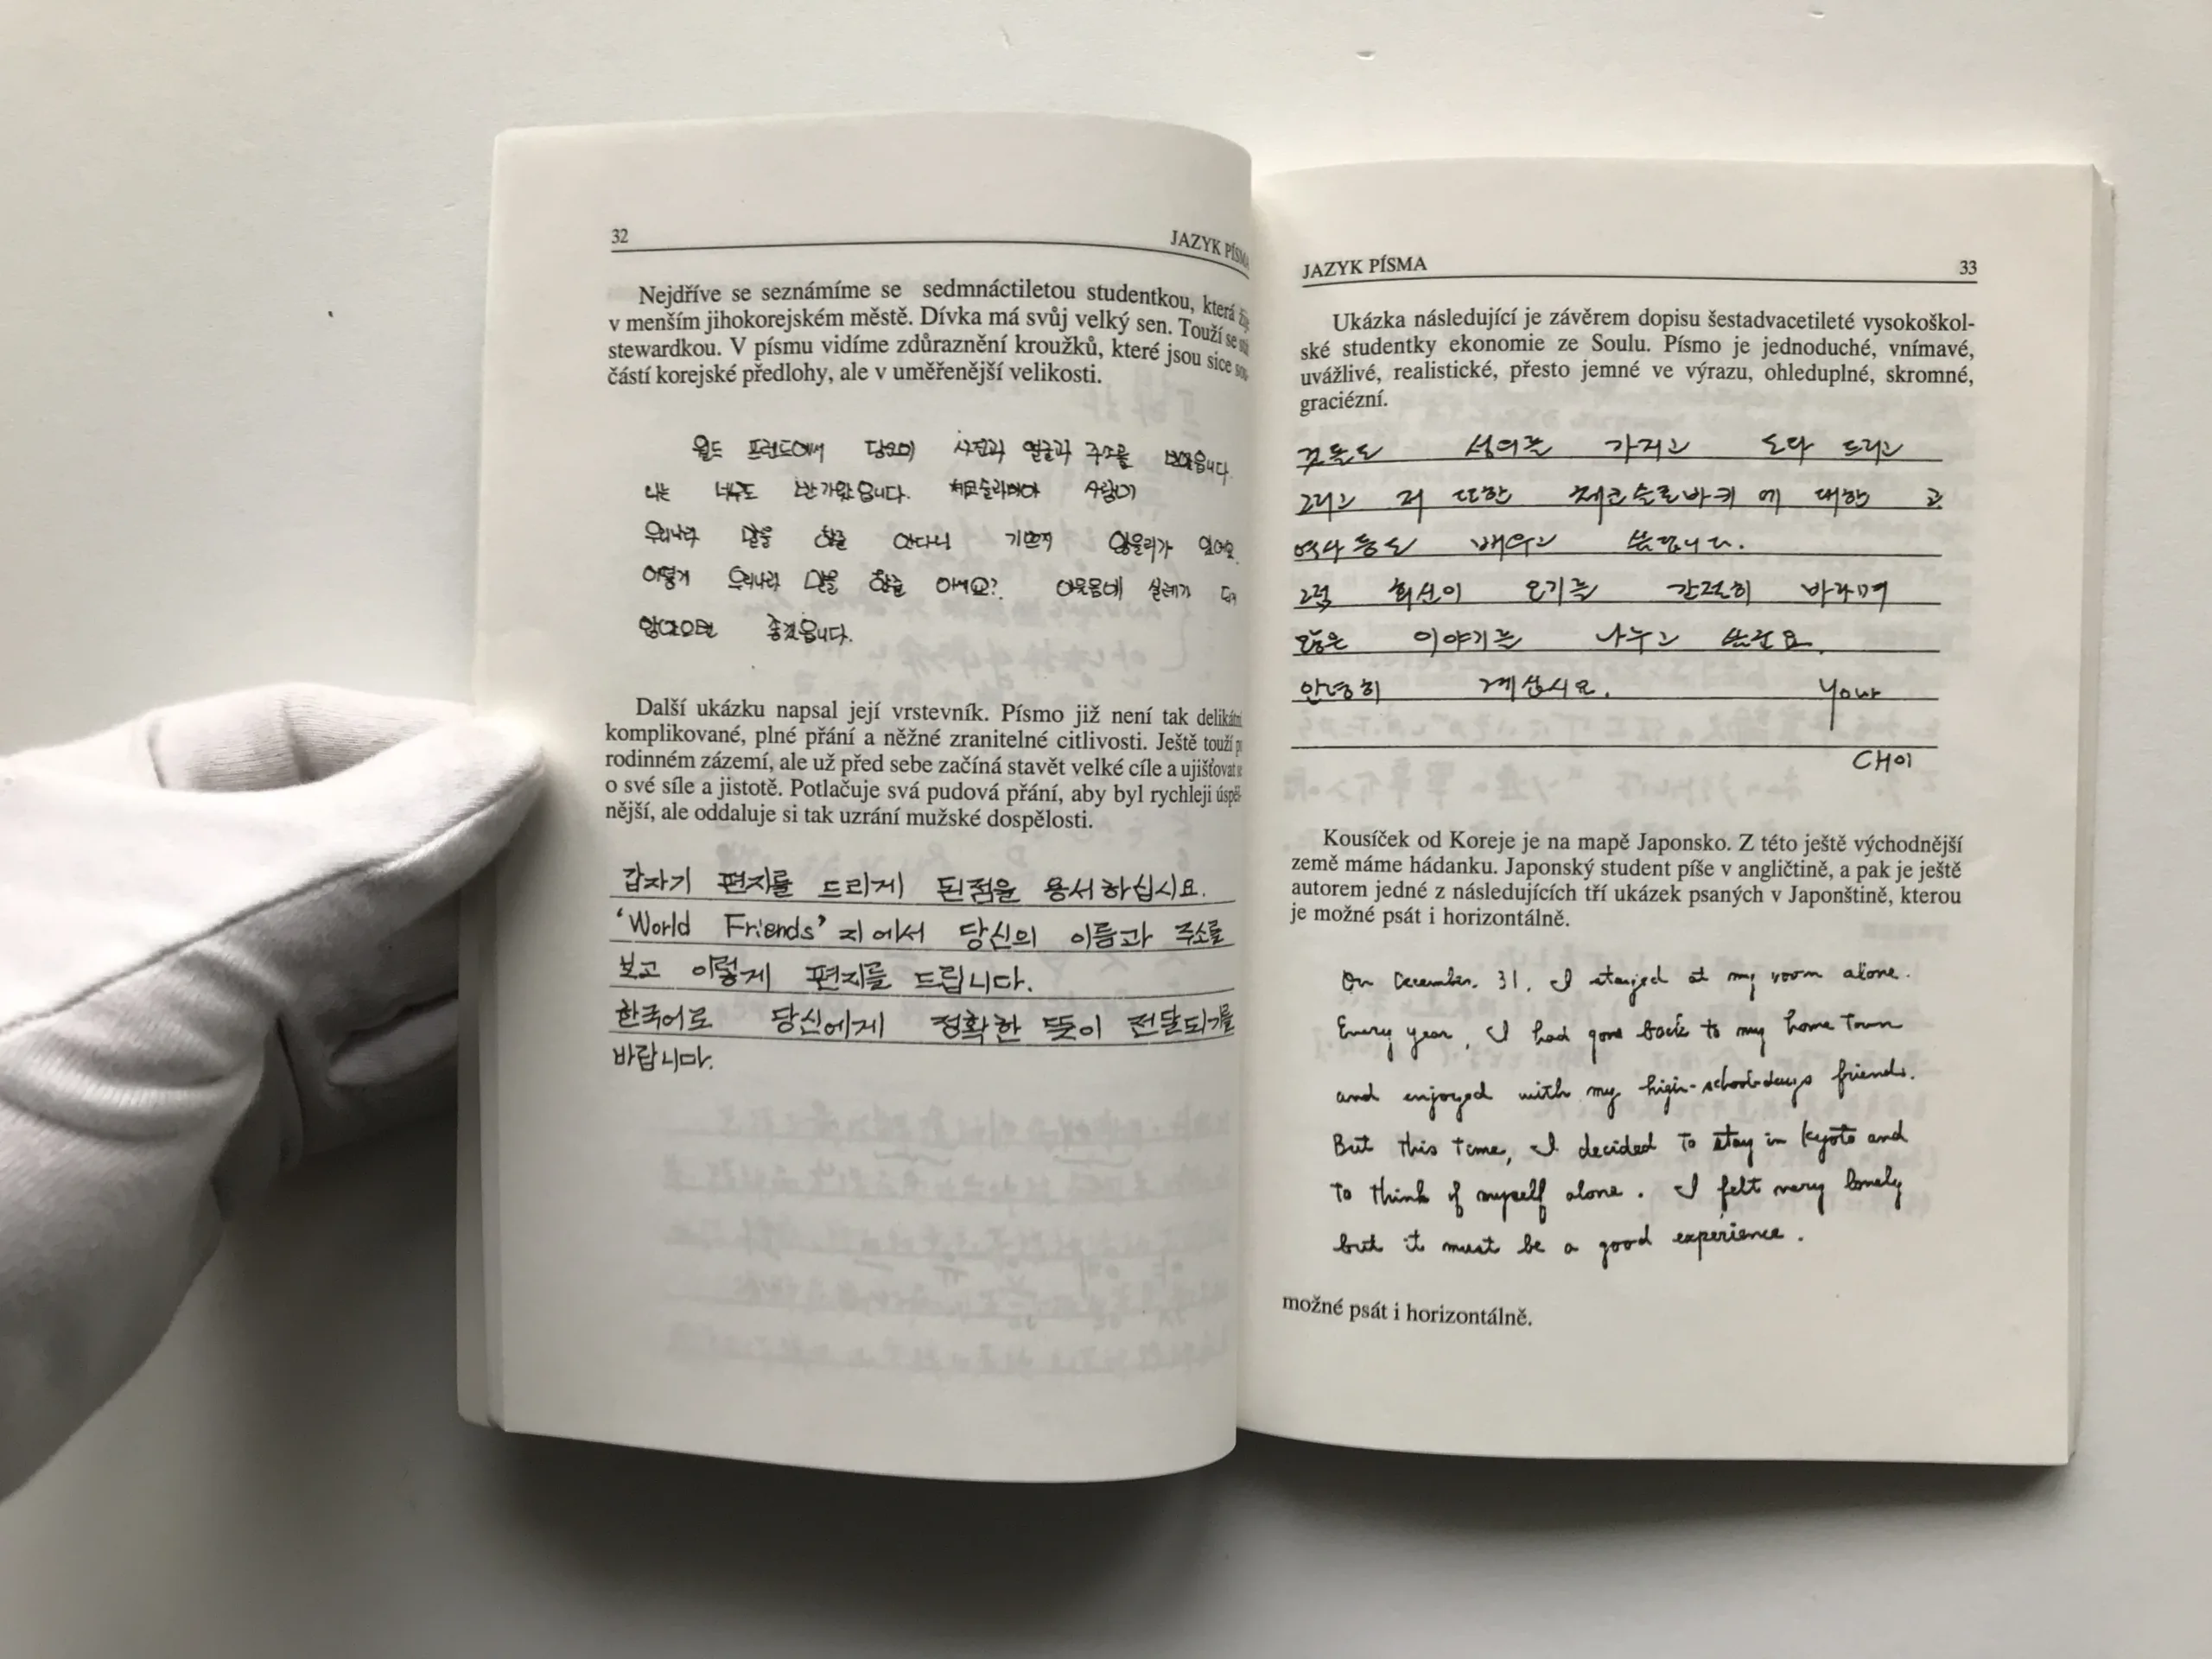 32
JAZYK PÍSMA
Nejdříve se seznámíme se sedmnáctiletou studentkou, která
v menším jihokorejském městě. Dívka má svůj velký sen. Touží se
stewardkou. V písmu vidíme zdůraznění kroužků, které jsou sice
částí korejské předlohy, ale v uměřenější velikosti.
월드 프렌드에서 당오이 사진과 얼굴과 주소를
나는 너무도 반가왔읍니다. 체코슬라바아 사람이
우리나라 말을 할줄 안다니 기쁘지 않을리가 있어요.
어떻게 우리나라 말을 할줄 아세요? 아뭏튼에 실례가
않았으면 좋겠읍니다.
Další ukázku napsal její vrstevník. Písmo již není tak
komplikované, plné přání a něžné zranitelné citlivosti. Ještě touží
rodinném zázemí, ale už před sebe začíná stavět velké cíle a ujišťovat
o své síle a jistotě. Potlačuje svá pudová přání, aby byl rychleji úspěš-
nější, ale oddaluje si tak uzrání mužské dospělosti.
갑자기 편지를 드리게 된점을 용서하십시요.
‘World Friends’ 지에서 당신의 이름과 주소를
보고 이렇게 편지를 드립니다.
한국어로 당신에게 정확한 뜻이 전달되기를
바랍니다.
JAZYK PÍSMA
33
Ukázka následující je závěrem dopisu šestadvacetileté vysokoškol-
ské studentky ekonomie ze Soulu. Písmo je jednoduché, vnímavé,
uvážlivé, realistické, přesto jemné ve výrazu, ohleduplné, skromné,
graciézní.
것들도 성의를 가지고 도와 드리고
그리고 저 또한 체코슬로바키에 대한
역사등도 배우고 싶답니다.
그럼 회신이 오기를 간절히 바라며
많은 이야기를 나누고 싶군요.
안녕히 계십시요. Your
CHOI
Kousíček od Koreje je na mapě Japonsko. Z této ještě východnější
země máme hádanku. Japonský student píše v angličtině, a pak je ještě
autorem jedné z následujících tří ukázek psaných v Japonštině, kterou
je možné psát i horizontálně.
On December. 31, I stayed at my room alone.
Every year, I had gone back to my home town
and enjoyed with my high-school-days friends.
But this time, I decided to stay in Kyoto and
to think of myself alone. I felt very lonely
but it must be a good experience.
možné psát i horizontálně.